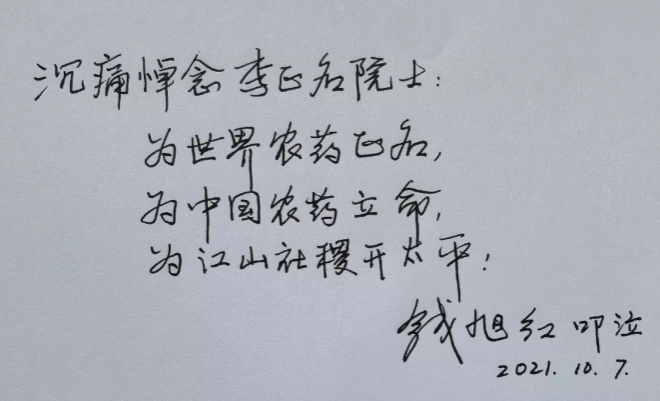 沉痛悼念李正名院士:
为世界农药正名,
为中国农药立命,
为江山社稷开太平!
钱旭红 叩泣
2021. 10. 7.